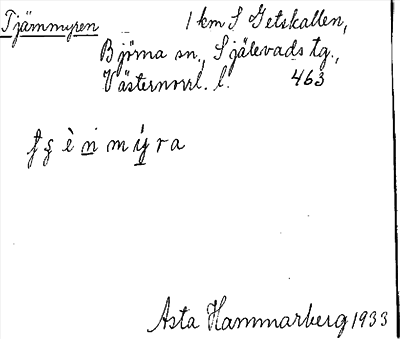 Tjämmyren 1 km S Getskallen,
Björna sn., Själevads tg.,
Västernorrl. l. 463
tʂè n m ý r a
Asta Hammarberg 1933